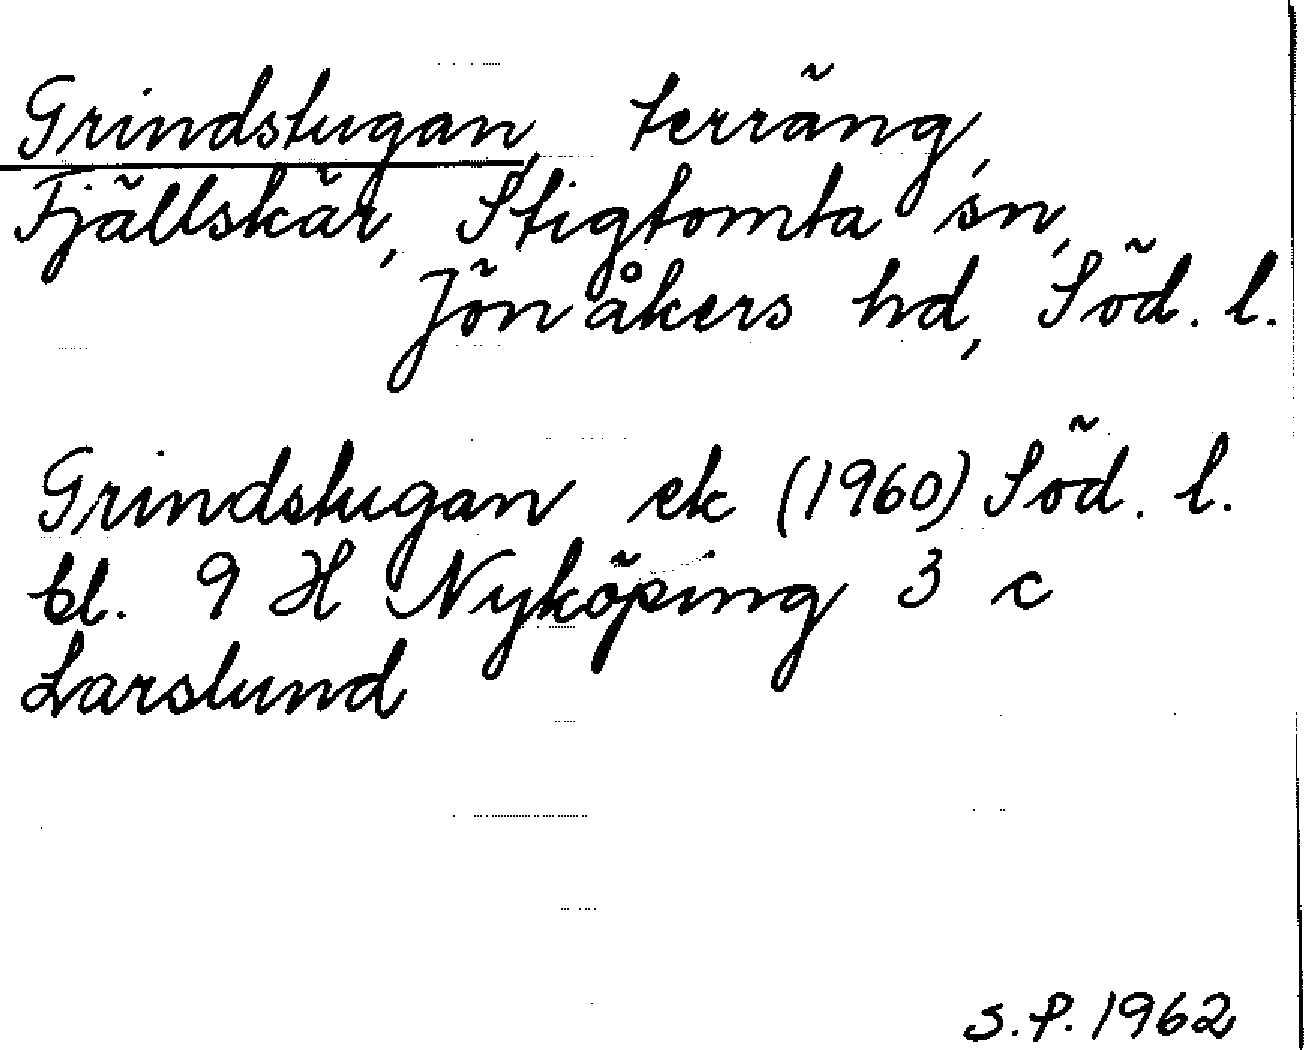 Grindstugan, terräng,
Fjällskär, Stigtomta sn,
Jönåkers hd, Söd. l.
Grindstugan ek (1960) Söd. l.
bl. 9 H Nyköping 3 c
Larslund
S.P. 1962